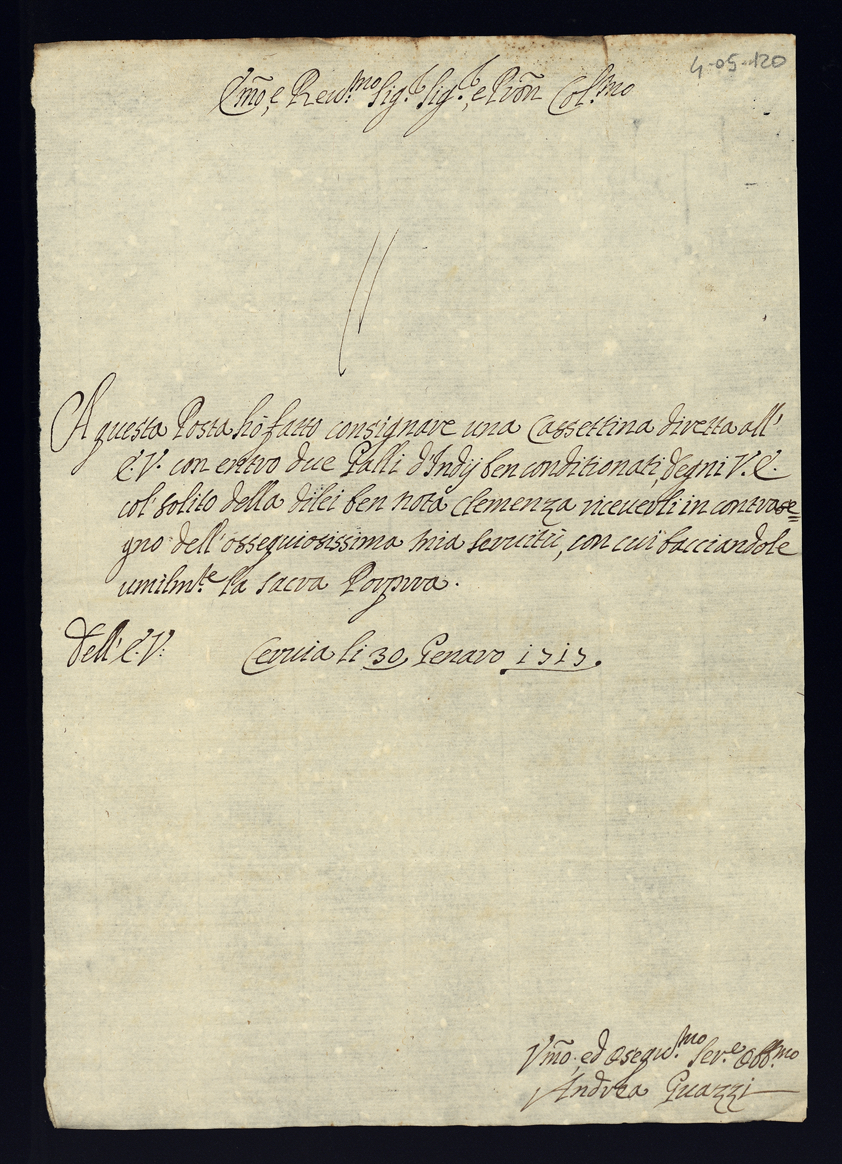 4-05-120
E͠mo, e Reud.mo Sig.r Sig.r, e Pron͠ Col.mo
A questa Posta hò fatto consignare una Cassettina diretta all'
E. V. con entro due Galli d'Indij ben conditionati, degni V. E.
col' solito della dilei ben nota Clemenza riceverli in contrase=
gno dell'ossequiosissima mia servitù, con cui bacciandole
umilm.te la sacra Porpora.
Dell'E. V. Cervia li 30 Genaro 1717.
V͠mo, ed Osequ.mo Ser.e Obb.mo
Andrea Guazzi